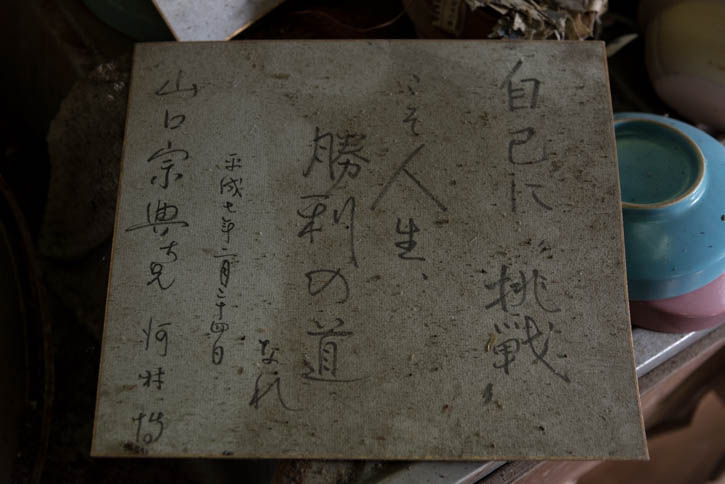 自己に挑戦
こそ人生、
勝利の道
なれ
平成七年二月二十四日
山口宗典大兄